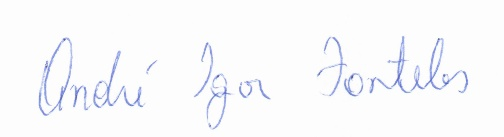 André Igor Fonteles